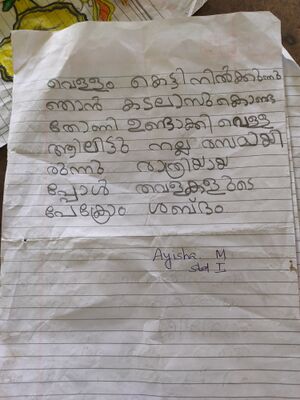 വെള്ളം കെട്ടി നിൽക്കുന്നു
ഞാൻ കടലാസു കൊണ്ട
തോണി ഉണ്ടാക്കി വെള്ള
ത്തിലിട്ടു നല്ല രസമായി
രുന്നു രാത്രിയായ
പ്പോൾ തവളകളുടെ
പേക്രോം ശബ്ദം
Ayisha M
std I